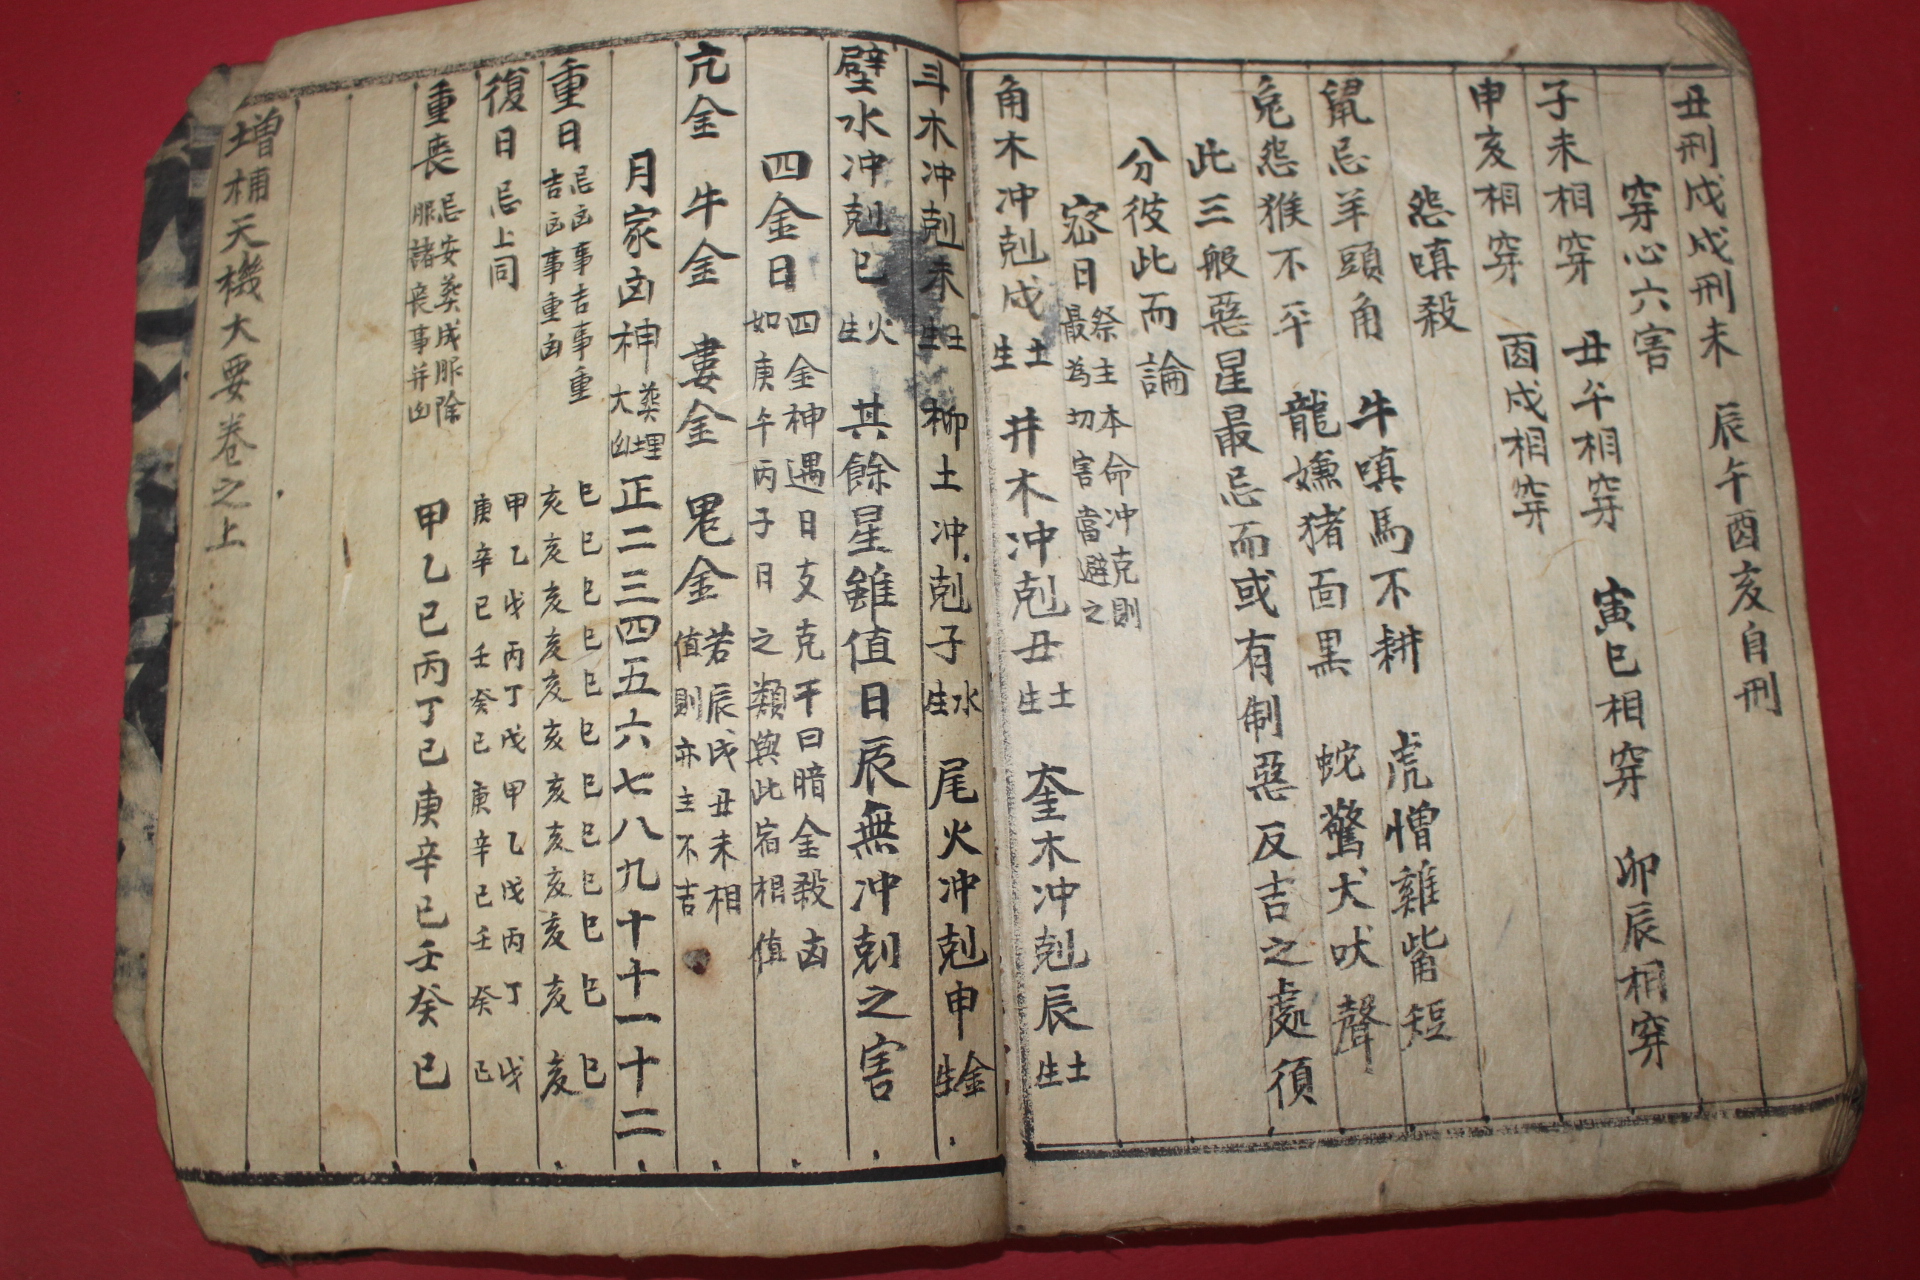 丑刑戌戌刑未 辰午酉亥自刑
穿心六害
子未相穿 丑午相穿 寅巳相穿 卯辰相穿
申亥相穿 酉戌相穿
怨嗔殺
鼠忌羊頭角 牛嗔馬不耕 虎憎雞觜短
兔怨猴不平 龍嫌猪面黑 蛇驚犬吠聲
此三般惡星最忌而或有制惡反吉之處須
分彼此而論
宻日 祭主本命冲克則
最為切害當避之
角木冲剋戌 土生 井木冲剋丑 土生 奎木冲剋辰 土生
斗木冲剋未 土生 柳土冲剋子 水生 尾火冲剋申 金生
壁水冲剋巳 火生 其餘星雖值日辰無冲剋之害
四金日 四金神遇日支克干曰暗金殺凶
如庚午丙子日之類與此宿相值
亢金 牛金 婁金 鬼金 若辰戌丑未相
值則亦主不吉
月家凶神 葬埋大凶 正二三四五六七八九十十一十二
重日 忌凶事吉事重
吉凶事重凶 巳亥 巳亥 巳亥 巳亥 巳亥 巳亥 巳亥 巳亥 巳亥 巳亥 巳亥 巳亥
復日 忌上同 甲庚 乙辛 戊己 丙壬 丁癸 戊己 甲庚 乙辛 戊己 丙壬 丁癸 戊己
重喪 忌安葬成服除
服諸喪事并凶 甲乙己丙丁己庚辛己壬癸己
增補天機大要卷之上